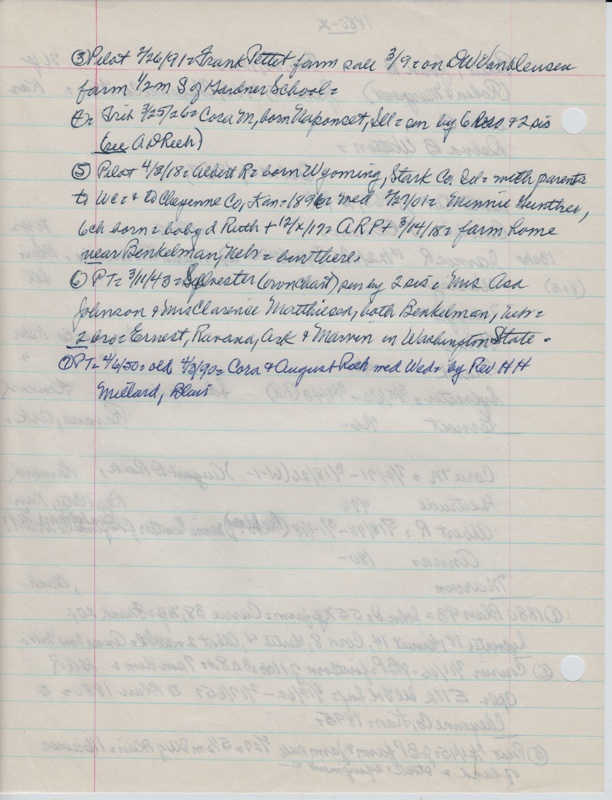 ③ Pilot 2/26/91 = Frank Pettet farm sale 3/9 = on D W Vanbleusen
farm 1/2 m S of Gardner School =
④ = Trib 3/25/26 = Cora M, born Neponset, Ill = sur by 6 & 2 sis
(see A D Rech)
⑤ Pilot 4/3/18 = Albert R = born Wyoming, Stark Co, Ill = with parents
to Wc = & to Cheyenne Co, Kan = 1896 = med 3/27/01 = Minnie Gunther,
6 ch born = baby d Ruth + 12/x/17 = A R P + 3/14/18 = farm home
near Benkelman, Nebr = bur there.
⑥ PT = 3/11/43 = Sylvester (own chart) sur by 2 sis: Mrs Asa
Johnson & Mrs Clarence Matthieson, both Benkelman, Nebr =
2 bro = Ernest, Ravana, Ark & Marvin in Washington State.
⑦ PT = 4/6/50 = old 4/3/90 = Cora & August Rech med Wed = by Rev H H
Millard, Blair